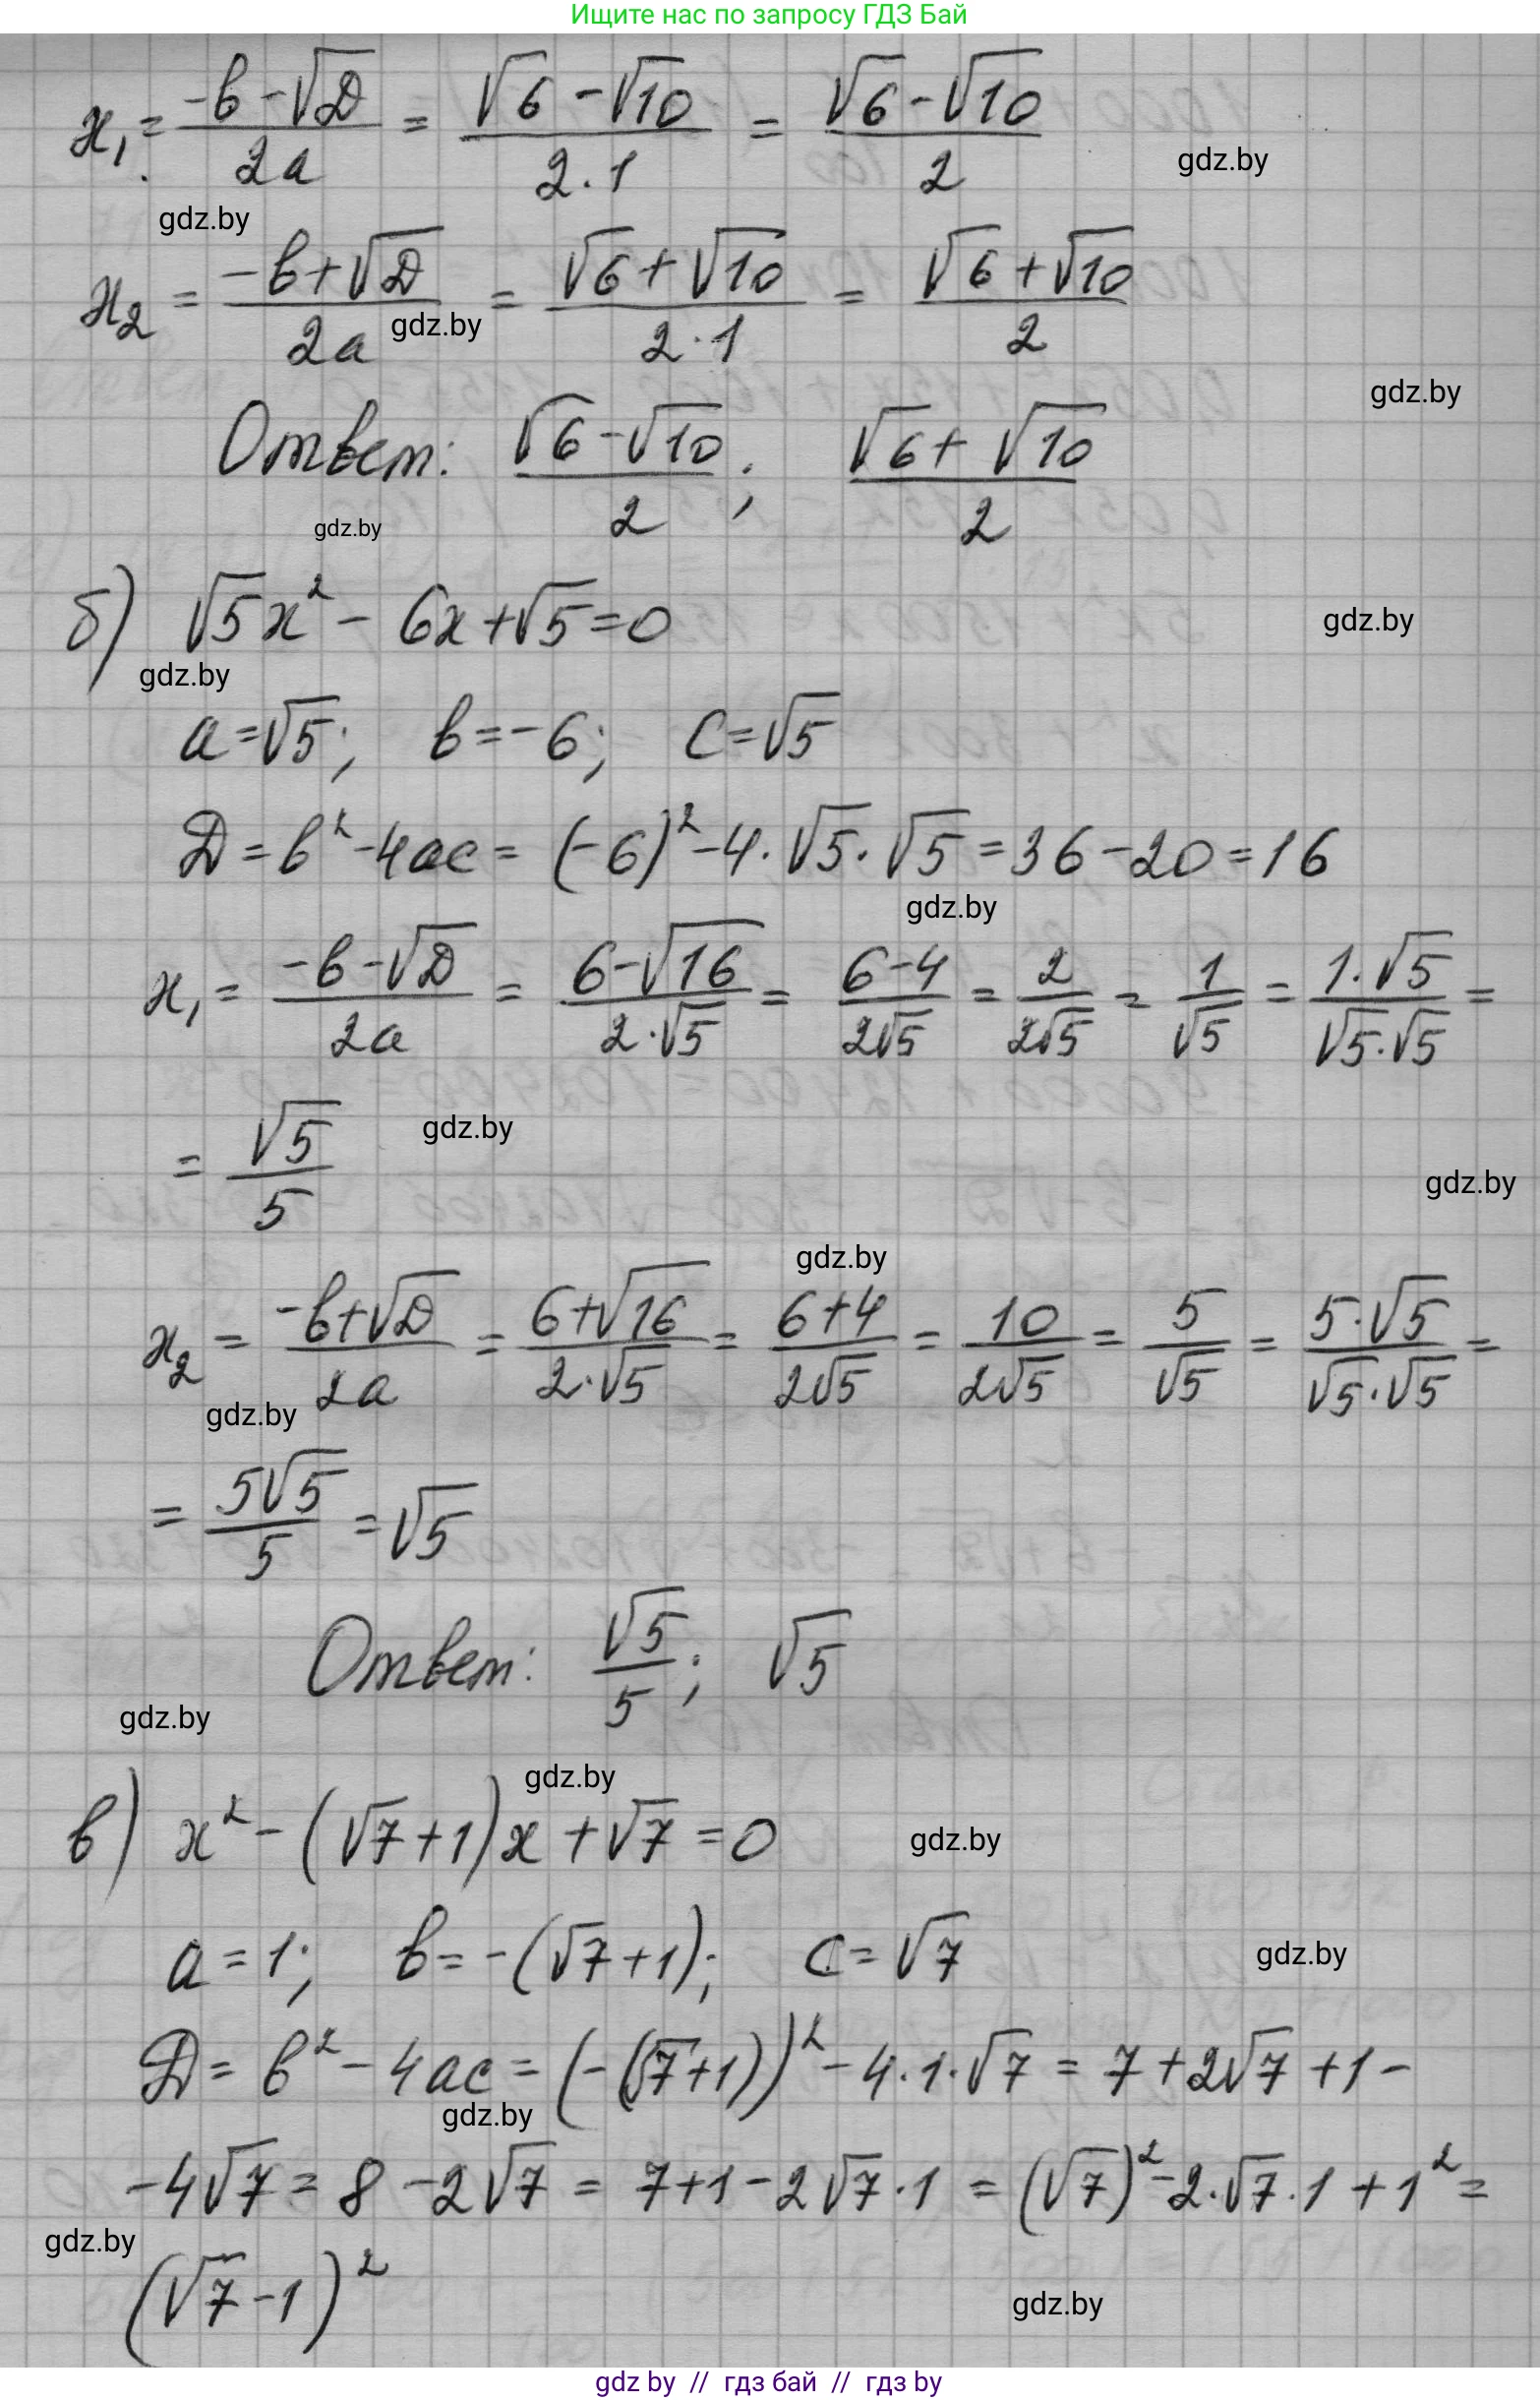 Ищите нас по запросу ГДЗ Бай
x₁ = (-b - √D)/(2a) = (√6 - √10)/(2·1) = (√6 - √10)/2
gdz.by
gdz.by
x₂ = (-b + √D)/(2a) = (√6 + √10)/(2·1) = (√6 + √10)/2
gdz.by
gdz.by
Ответ: (√6 - √10)/2; (√6 + √10)/2
gdz.by
б) √5x² - 6x + √5 = 0
gdz.by
gdz.by
a = √5; b = -6; c = √5
D = b² - 4ac = (-6)² - 4·√5·√5 = 36 - 20 = 16
gdz.by
x₁ = (-b - √D)/(2a) = (6 - √16)/(2·√5) = (6 - 4)/(2√5) = 2/(2√5) = 1/√5 = (1·√5)/(√5·√5) =
= √5/5
gdz.by
gdz.by
gdz.by
x₂ = (-b + √D)/(2a) = (6 + √16)/(2·√5) = (6 + 4)/(2√5) = 10/(2√5) = 5/√5 = (5·√5)/(√5·√5) =
gdz.by
= (5√5)/5 = √5
Ответ: √5/5; √5
gdz.by
gdz.by
в) x² - (√7 + 1)x + √7 = 0
gdz.by
a = 1; b = -(√7 + 1); c = √7
gdz.by
D = b² - 4ac = (-(√7 + 1))² - 4·1·√7 = 7 + 2√7 + 1 -
gdz.by
- 4√7 = 8 - 2√7 = 7 + 1 - 2√7·1 = (√7)² - 2·√7·1 + 1² =
gdz.by
(√7 - 1)²
gdz.by
gdz by // гдз бай // гдз by